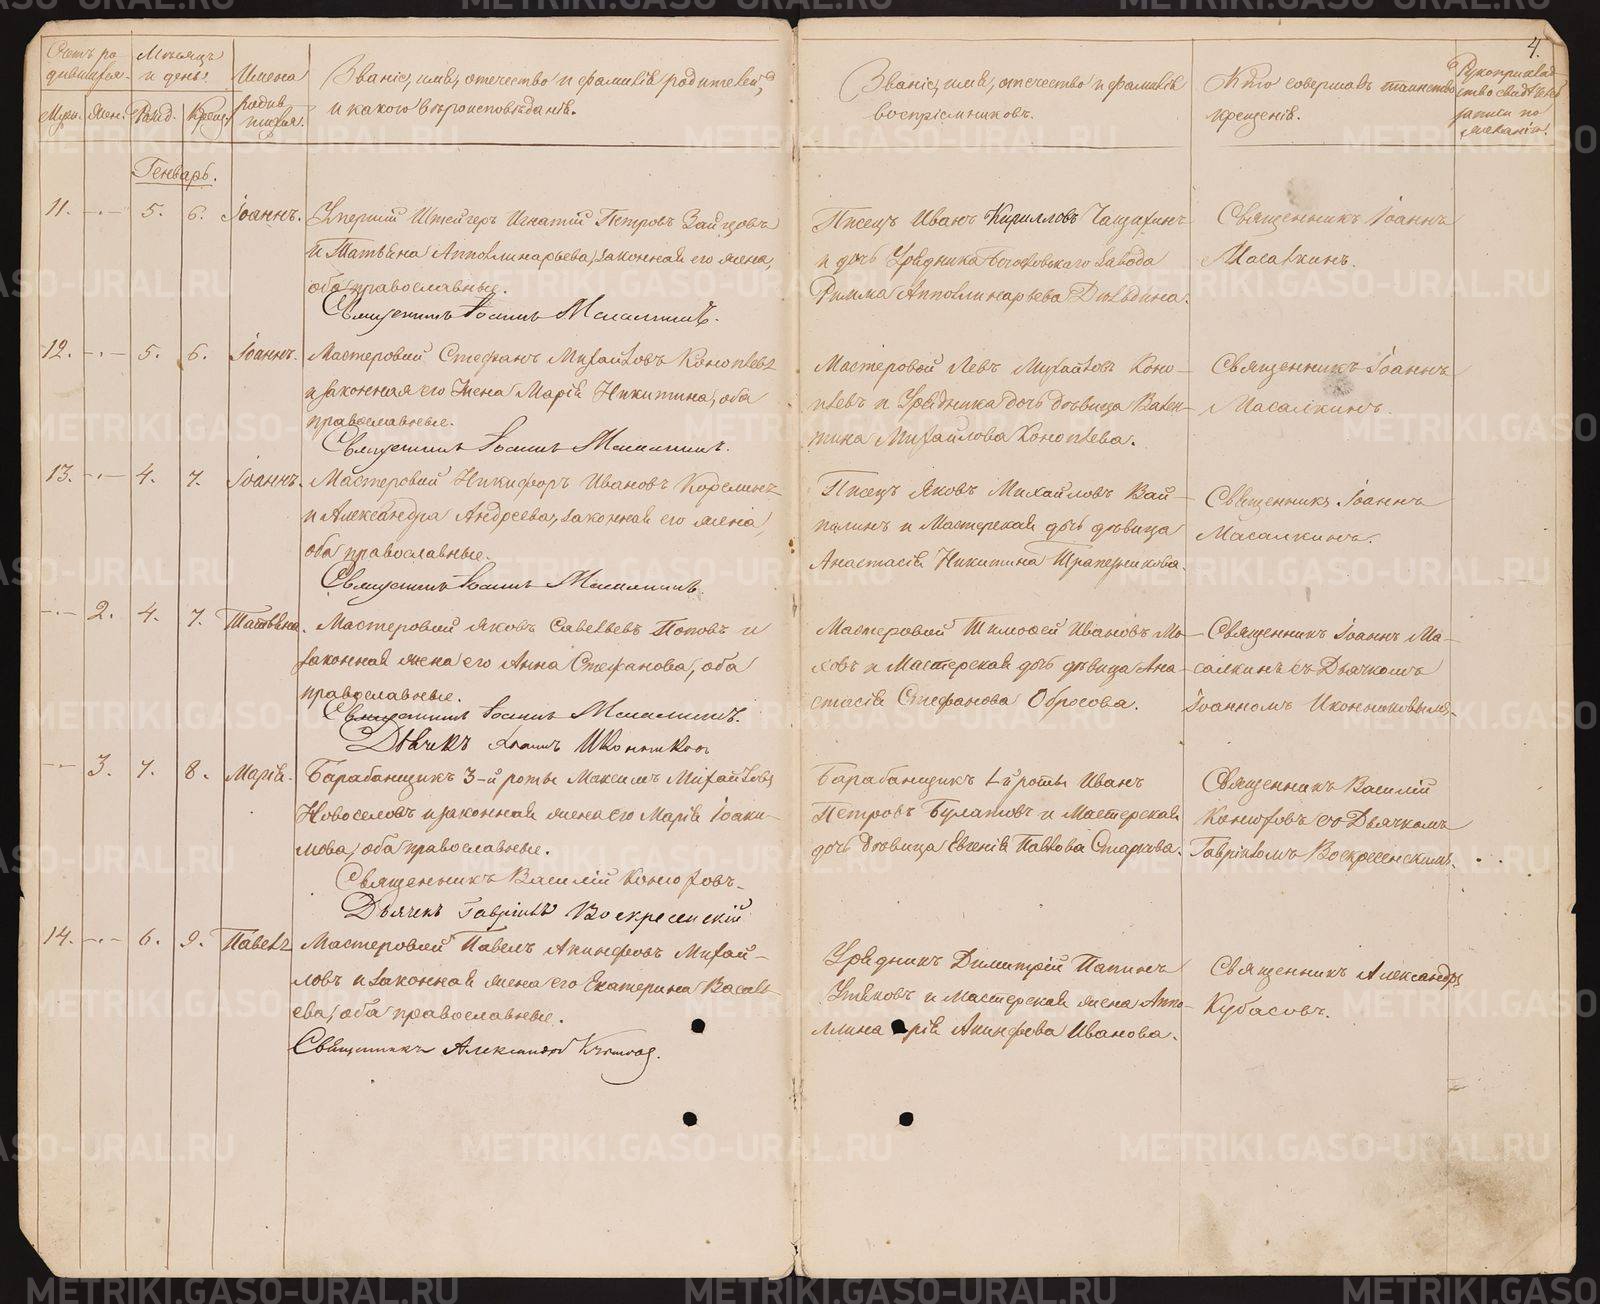 4.
Счетъ ро
дившихся.
Мѣсяцъ
и день.
Имена
родив
шихся.
Званіе, имя, отечество и фамилія родителей,
и какого вѣроисповѣданія.
Званіе, имя, отечество и фамилія
воспріемниковъ.
Кто совершалъ таинство
крещенія.
Рукоприклад
ство свидѣтелей
записи по
желанію.
Муж. Жен. Рожд. Крещ.
Генварь.
11. -·- 5. 6. Іоаннъ. Штейгеръ Игнатій Петровъ Зайцовъ
и Татьяна Апполинарьева, законная его жена,
оба православные.
Священникъ Іоаннъ Масалкинъ.
Писецъ Иванъ Кирилловъ Чащихинъ
и дочь Урядника завода
Римма Апполинарьева
Священникъ Іоаннъ
Масалкинъ.
12. -·- 5. 6. Іоаннъ. Мастеровый Стефанъ Михайловъ Коноплевъ
и законная его Жена Марія Никитина, оба
православные.
Священникъ Іоаннъ Масалкинъ.
Мастеровой Левъ Михайловъ Коно-
плевъ и Урядника дочь дѣвица Вален-
тина Михайлова Коноплева.
Священникъ Іоаннъ
Масалкинъ.
13. -·- 4. 7. Іоаннъ. Мастеровый Никифоръ Ивановъ Корелинъ
и Александра Андреева, законная его жена,
оба православные.
Священникъ Іоаннъ Масалкинъ.
Писецъ Яковъ Михайловъ Вай-
и Мастерская дочь дѣвица
Анастасія Никитина Трапезникова.
Священникъ Іоаннъ
Масалкинъ.
-·- 2. 4. 7. Татьяна. Мастеровый Яковъ Савельевъ Поповъ и
законная жена его Анна Стефанова, оба
православные.
Священникъ Іоаннъ Масалкинъ.
Дьячекъ Іоаннъ Иконниковъ
Мастеровый Тимофей Ивановъ Мо-
ховъ и Мастерская дочь дѣвица Ана-
стасія Стефанова Обросова.
Священникъ Іоаннъ Ма-
салкинъ съ Дьячкомъ
Іоанномъ Иконниковымъ.
-- 3. 7. 8. Марія. Барабанщикъ 3-й роты Максимъ Михайловъ
Новоселовъ и законная жена его Марія Іоаки-
мова, оба православные.
Священникъ Василій Конюховъ.
Дьячекъ Гавріилъ Воскресенскій
Барабанщикъ 1-й роты Иванъ
Петровъ Булатовъ и Мастерская
дочь Дѣвица Евгенія Павлова Старкова.
Священникъ Василій
Конюховъ со Дьячкомъ
Гавріиломъ Воскресенскимъ.
14. -·- 6. 9. Павелъ Мастеровый Павелъ Акинфіевъ Михай-
ловъ и законная жена его Екатерина Василь-
ева, оба православные.
Священникъ Александръ Кубасовъ.
Урядникъ Димитрій Папинъ
и Мастерская жена Аппо-
ллинарія Акинфіева Иванова.
Священникъ Александръ
Кубасовъ.
METRIKI.GASO-URAL.RU